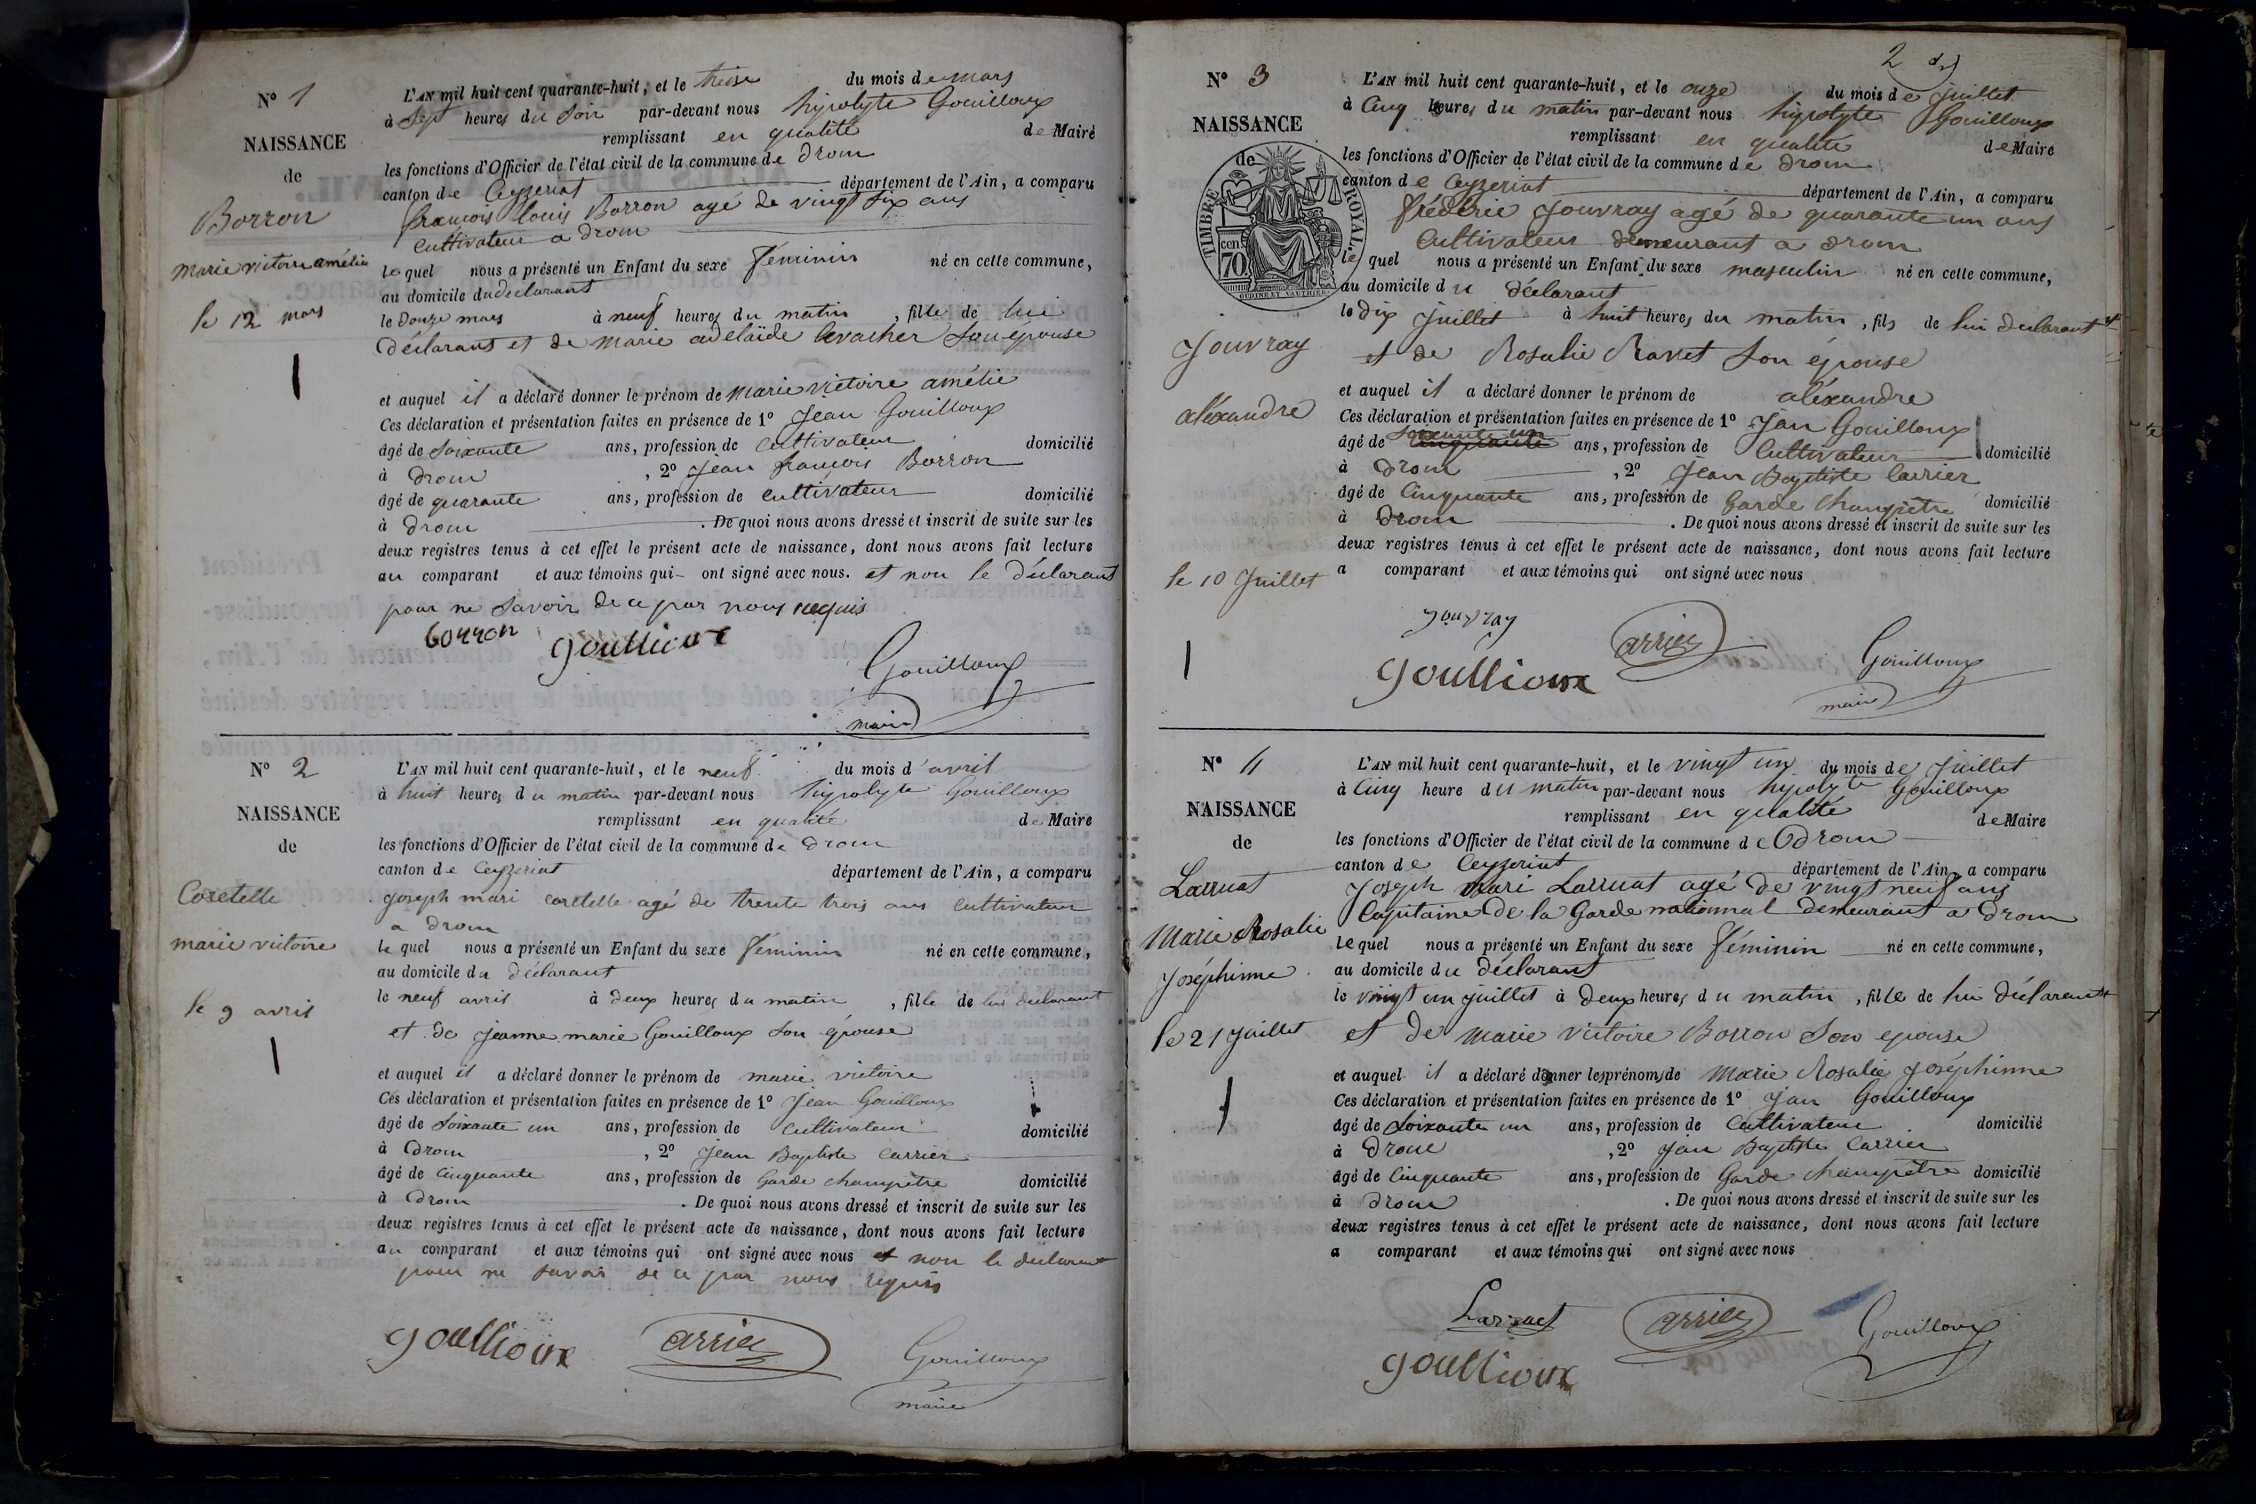 N° 1
NAISSANCE
de
Borron
marie victoire amélie
le 12 mars
L'AN mil huit cent quarante-huit, et le treise du mois de mars
à sept heures du soir par-devant nous hypolyte Gouilloux
remplissant en qualité de Maire
les fonctions d'Officier de l'état civil de la commune de drom
canton de Ceyzeriat département de l'Ain, a comparu
françois louis Borron agé de vingt six ans
cultivateur a drom
le quel nous a présenté un Enfant du sexe féminin né en cette commune,
au domicile du déclarant
le Douze mars à neuf heures du matin, fille de lui
déclarant et de marie adelaïde levacher son épouse
et auquel il a déclaré donner le prénom de marie victoire amélie
Ces déclaration et présentation faites en présence de 1° Jean Gouilloux
âgé de soixante ans, profession de cultivateur domicilié
à drom, 2° Jean françois Borron
âgé de quarante ans, profession de cultivateur domicilié
à drom. De quoi nous avons dressé et inscrit de suite sur les
deux registres tenus à cet effet le présent acte de naissance, dont nous avons fait lecture
au comparant et aux témoins qui ont signé avec nous. et non le déclarant
pour ne savoir de ce par nous requis
borron goullioux
Gouilloux
maire
N° 2
NAISSANCE
de
Coretelle
marie victoire
le 9 avril
L'AN mil huit cent quarante-huit, et le neuf du mois d'avril
à huit heures du matin par-devant nous hypolyte Gouilloux
remplissant en qualité de Maire
les fonctions d'Officier de l'état civil de la commune de drom
canton de Ceyzeriat département de l'Ain, a comparu
joseph mari coretelle agé de trente trois ans cultivateur
a drom
le quel nous a présenté un Enfant du sexe féminin né en cette commune,
au domicile du déclarant
le neuf avril à deux heures du matin, fille de lui declarant
et de jeanne marie Gouilloux son épouse
et auquel il a déclaré donner le prénom de marie victoire
Ces déclaration et présentation faites en présence de 1° Jean Gouilloux
âgé de soixante un ans, profession de cultivateur domicilié
à drom, 2° Jean Baptiste carrier
âgé de cinquante ans, profession de Garde champêtre domicilié
à drom. De quoi nous avons dressé et inscrit de suite sur les
deux registres tenus à cet effet le présent acte de naissance, dont nous avons fait lecture
au comparant et aux témoins qui ont signé avec nous et non le declarant
pour ne savoir de ce par nous requis
goullioux carrier Gouilloux
maire
2
N° 3
NAISSANCE
de
TIMBRE ROYAL.
70 cen.
OUDINÉ ET VAUTHIER
Jouvray
aléxandre
le 10 Juillet
L'AN mil huit cent quarante-huit, et le onze du mois de juillet
à cinq heures du matin par-devant nous hypolyte Gouilloux
remplissant en qualité de Maire
les fonctions d'Officier de l'état civil de la commune de drom
canton de Ceyzeriat département de l'Ain, a comparu
fréderic Jouvray agé de quarante un ans
Cultivateur demeurant a drom
le quel nous a présenté un Enfant du sexe masculin né en cette commune,
au domicile du déclarant
le dix juillet à huit heures du matin, fils de lui declarant
et de Rosalie Ravet son épouse
et auquel il a déclaré donner le prénom de aléxandre
Ces déclaration et présentation faites en présence de 1° Jean Gouilloux
soixante un
âgé de cinquante ans, profession de Cultivateur domicilié
à drom, 2° Jean Baptiste Carrier
âgé de Cinquante ans, profession de Garde champêtre domicilié
à Drom. De quoi nous avons dressé et inscrit de suite sur les
deux registres tenus à cet effet le présent acte de naissance, dont nous avons fait lecture
a comparant et aux témoins qui ont signé avec nous
jouvray carrier Gouilloux
goullioux maire
N° 4
NAISSANCE
de
Larruat
Marie Rosalie
Joséphinne
le 21 Juillet
L'AN mil huit cent quarante-huit, et le vingt un du mois de Juillet
à Cinq heure du matin par-devant nous hypolyte Gouilloux
remplissant en qualité de Maire
les fonctions d'Officier de l'état civil de la commune de Drom
canton de Ceyzeriat département de l'Ain, a comparu
Joseph Mari Larruat agé de vingt neuf ans
Capitaine de la Garde national demeurant a drom
le quel nous a présenté un Enfant du sexe féminin né en cette commune,
au domicile du déclarant
le vingt un juillet à deux heures du matin, fille de lui déclarant
et de marie victoire Borron son epouse
et auquel il a déclaré donner les prénoms de Marie Rosalie Joséphinne
Ces déclaration et présentation faites en présence de 1° Jean Gouilloux
âgé de soixante un ans, profession de Cultivateur domicilié
à drom, 2° Jean Baptiste Carrier
âgé de Cinquante ans, profession de Garde champêtre domicilié
à drom. De quoi nous avons dressé et inscrit de suite sur les
deux registres tenus à cet effet le présent acte de naissance, dont nous avons fait lecture
a comparant et aux témoins qui ont signé avec nous
Larruat carrier Gouilloux
goullioux